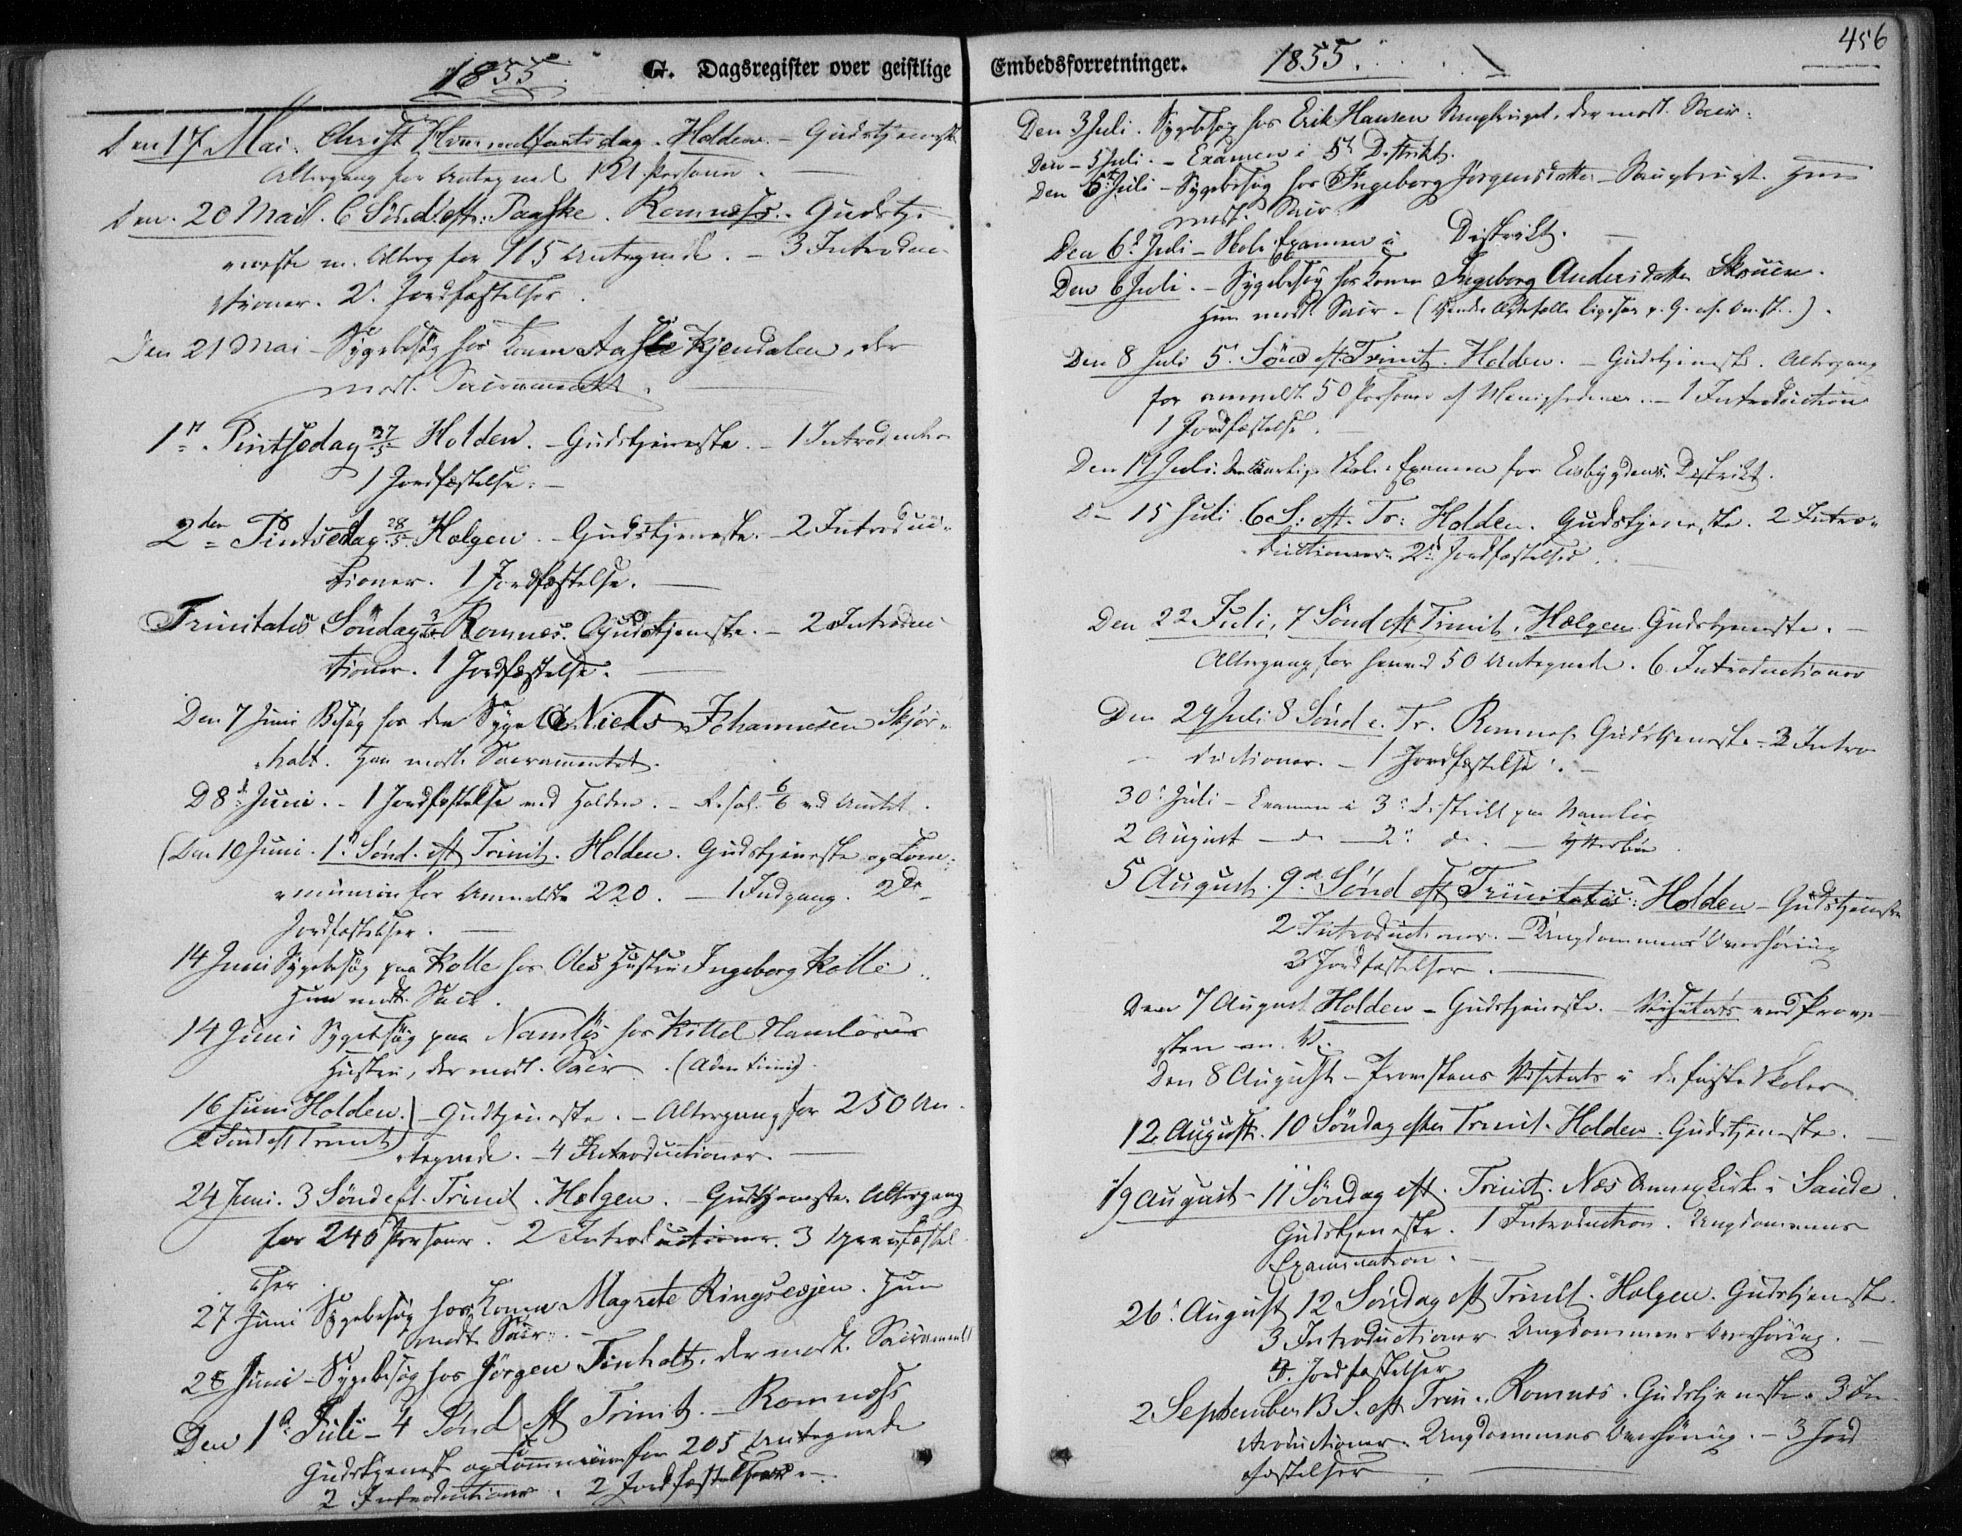 1855.
G. Dagsregister over geistlige
Den 17 Mai. Christi Himmelfartsdag. Holden. – Gudstjeneste
Altergang for Antegned 121 Personer. –
Den. 20 Mai. 6 Sønd. eft. Paaske. Romnæss. Gudstj-
eneste m. Alterg for 115 Antegnede. – 3 Introduc-
tioner. 2 Jordfæstelser.
Den 21 Mai – Sygebesøg hos Konen Aaste Kjendalen, der
modt. Sacramentet.
1ste Pintsedag 27/5 Holden. – Gudstjeneste. – 1 Introduction
1 Jordfæstelse. –
2den Pintsedag 28/5 Helgen. – Gudstjeneste. – 2 Introduc-
tioner. 1 Jordfæstelse. –
Trinitatis Søndag 3/6 Romnes. Gudstjeneste. – 2 Introduc-
tioner. 1 Jordfæstelse. –
Den 7 Juni Besøg hos den Syge Niels Johannesen Skjør-
holt. Han modt. Sacramentet.
D 8de Juni. – 1 Jordfæstelse ved Holden. –
(Den 10 Juni. 1ste Sønd. eft Trinit. Holden. Gudstjeneste og Com-
munion for Anmeldte 220. – 1 Indgang. 2
Jordfæstelser. –
14 Juni Sygebesøg paa Kolle hos Oles Hustru Ingeborg Kolle
Hun modt. Sacr.
14 Juni Sygebesøg paa Namløs hos Kittel Namløses
Hustru, der modt. Sacr.
16 Juni Holden. – Gudstjeneste. – Altergang for 250 An-
2 Sønd eft Trinit) tegnede. – 4 Introductioner. –
24 Juni. 3 Sønd eft. Trinit. Helgen. – Gudstjeneste. Altergang
for 240 Personer. 2 Introductioner. 3 Jordfæstel-
ser
27 Juni Sygebesøg hos Konen Magrete Ringsevjen. Hun
modt. Sacr. –
28 Juni – Sygebesøg hos Jørgen Tinholt, der modt. Sacrament
Den 1ste Juli – 4 Sønd eft Trinit. – Romnæss
Gudstjeneste og Communion for 205 Antegnede
2 Introductioner. 2 Jordfæstelser. –
456
Embedsforretninger. 1855.
Den 3 Juli. Sygebesøg hos Erik Hansen Saugbruget, der modt. Sacr.
Den – 5 Juli. – Examen i 5te Distrikt.
Den 6 Juli – Sygebesøg hos Ingeborg Jørgensdatter – Saugbruget. Hun
modt. Sacr.
Den 6 Juli – Skole Examen i Distrikt. –
Den 6 Juli. – Sygebesøg hos Konen Ingeborg Andersdatter Skouen.
Hun modt Sacr –
Den 8 Juli 5 Sønd eft. Trinit. Holden. – Gudstjeneste. Altergang
for anmeldt 50 Personer af Menigheden. – 1 Introduction
1 Jordfæstelse. –
Den 11 Juli. Skole Examen for Eidbygdens Distrikt.
D – 15 Juli 6 S. eft. Tr. Holden. Gudstjeneste. 2 Intro-
ductioner. 2 Jordfæstelser.
Den 22 Juli, 7 Sønd eft Trinit. Hælgen Gudstjeneste. –
Altergang for 50 Antegnede. 6 Introductioner
Den 29 Juli 8 Sønd e. Tr. Romnes Gudstjeneste – 3 Intro-
ductioner. – 1 Jordfæstelse. –
30 Juli – Examen i 3 Distrikt paa Namløs
2 August – do – 2 do. – Ytterbøe.
5 August. 9de Sønd eft Trinitatis. Holden – Gudstjeneste
2 Introductioner. – Ungdommens Overhøring
3 Jordfæstelser. –
Den 7 August Holden – Gudstjeneste. – Visitats ved Prov-
sten
Den 8 August – Provstens Visitats i de faste Skoler
12 August. 10 Søndag efter Trinit. Holden. Gudstjeneste. –
19 August – 11 Søndag eft. Trinit. Næs Annexkirke i Saude.
Gudstjeneste. 1 Introduction. Ungdommens
Examination.
26 August 12 Søndag eft Trinit. Helgen. Gudstjeneste.
3 Introductioner. Ungdommens Overhøring. –
4. Jordfæstelser
2 September 13 S. eft Trin. Romnes. Gudstjeneste. 3 In-
troductioner. Ungdommens Overhøring. – 3 Jord
fæstelser –